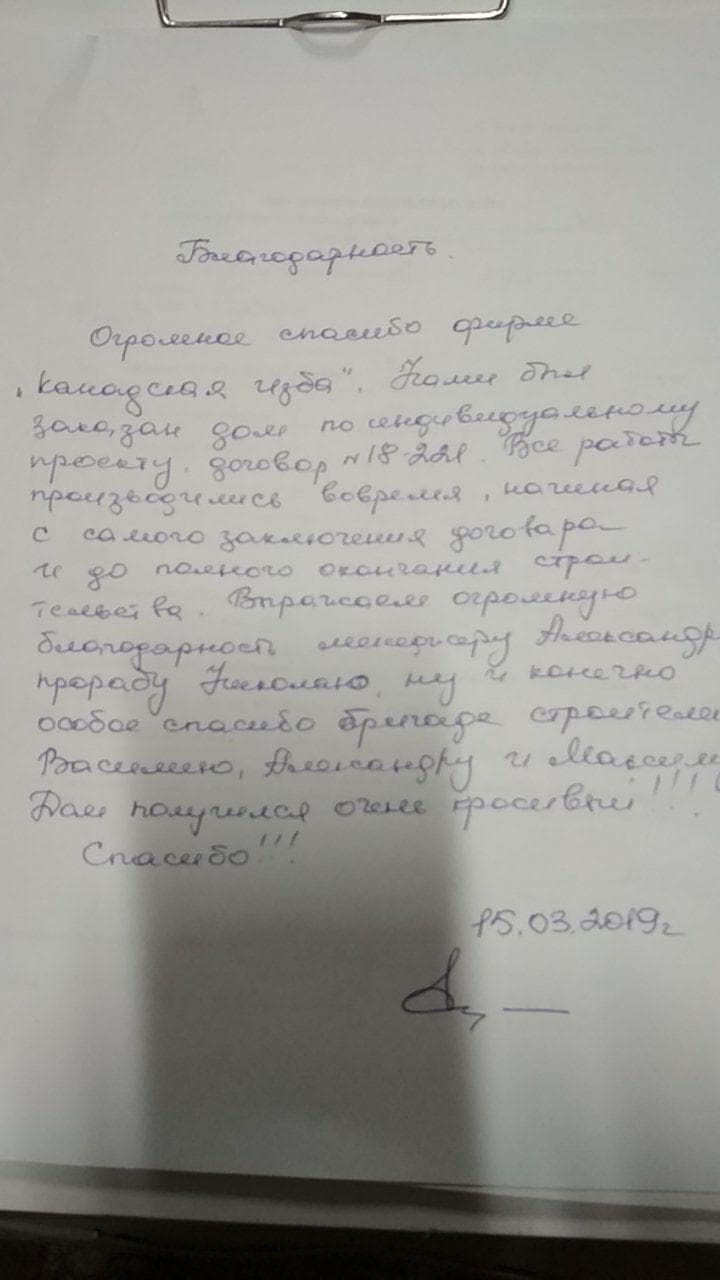 Благодарность.
Огромное спасибо фирме
"Канадская изба". Нами был
заказан дом по индивидуальному
проекту, договор №18-221. Все работы
производились вовремя, начиная
с самого заключения договора
и до полного окончания строи-
тельства. Выражаем огромную
благодарность менеджеру Александр
прорабу Николаю, ну и конечно
особое спасибо бригаде строителе
Василию, Александру и Максим
Дом получился очень красивый!!!
Спасибо!!!
15.03.2019г